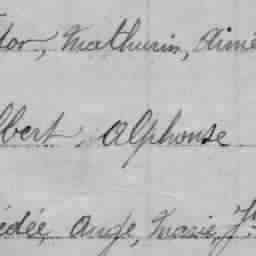 dor, Mathurin, Aimé
lbert, Alphonse
édée, Ange, Marie, J